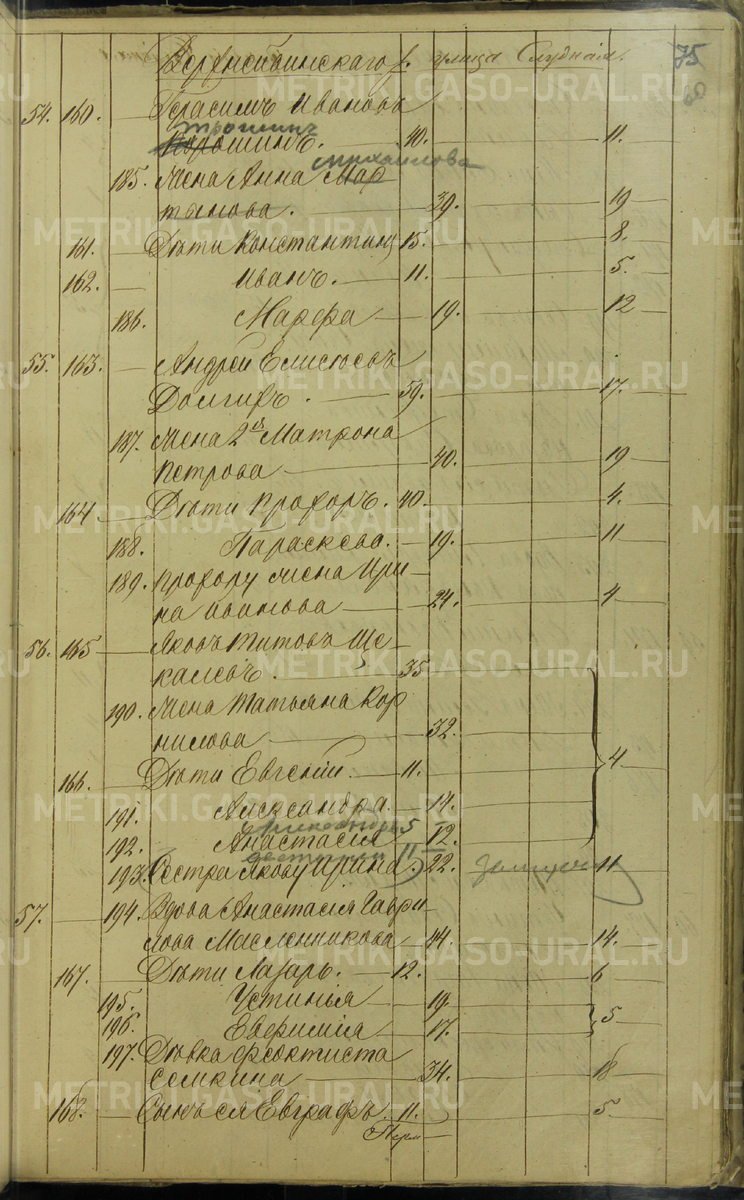 Верхнеивинскаго улица Слудная. 75
54. 160. Герасимъ Ивановъ
Трошинъ
40. 11.
Михайлова
185. Жена Анна Мар
тынова. 39. 19
161. Дѣти Константинъ 15. 8.
162. Иванъ. 11. 5.
186. Марфа 19. 12
55. 163. Андрей Елисѣевъ
Долгихъ. 59. 17.
187. Жена 2я Матрона
Петрова 40. 19
164. Дѣти Прохоръ. 40. 4.
188. Параскева. 19. 11
189. Прохору жена Ири
на Иванова 24. 4
56. 165 Яковъ Титовъ Ще
калевъ. 35
190. Жена Татьяна Кор
нилова 32.
4
166. Дѣти Евгеній. 11.
191. Александра 14.
192. Анастасія 12.
193. Сестра Якову Ирина 22. замужем 11
57. 194. Вдова Анастасія Гаври
лова Масленникова 44. 14.
167. Дѣти Лазарь. 12. 6
195. Устинья 19
5
196. Евфимія 17.
197. Дѣвка Феоктиста
Семкина 34. 18
168. Сынъ ея Евграфъ. 11. 5.
METRIKI.GASO-URAL.RU